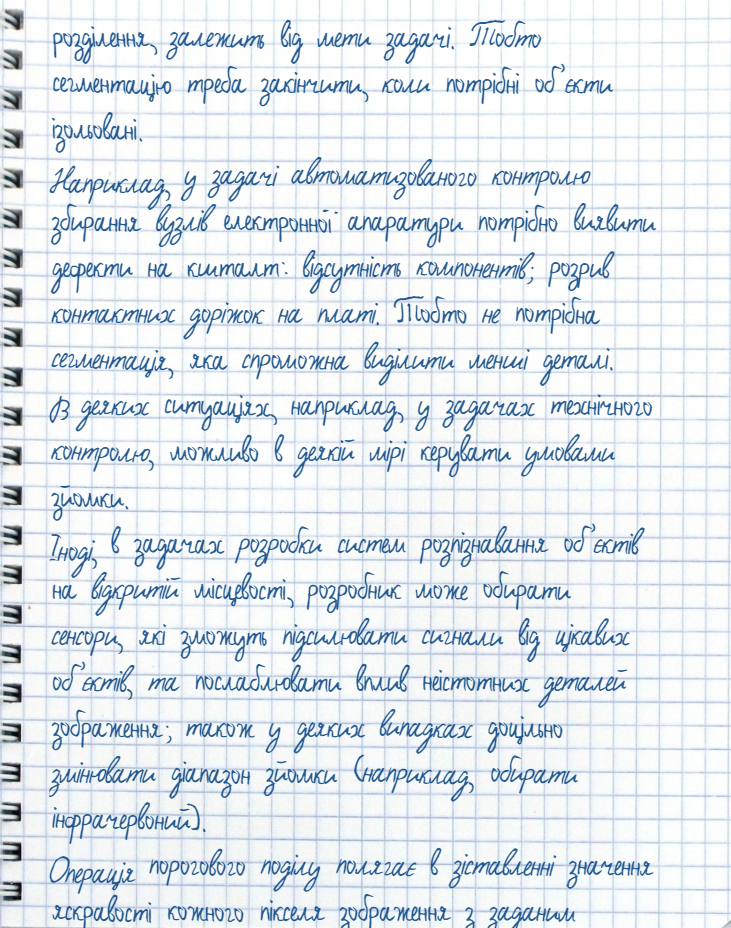 розділення, залежить від мети задачі. Тобто
сегментацію треба закінчити, коли потрібні об'єкти
ізольовані.
Наприклад, у задачі автоматизованого контролю
збирання вузлів електронної апаратури потрібно виявити
дефекти на кшталт: відсутність компонентів; розрив
контактних доріжок на платі. Тобто не потрібна
сегментація, яка спроможна виділити менші деталі.
В деяких ситуаціях, наприклад, у задачах технічного
контролю, можливо в деякій мірі керувати умовами
зйомки.
Іноді, в задачах розробки систем розпізнавання об'єктів
на відкритій місцевості, розробник може обирати
сенсори, які зможуть підсилювати сигнали від цікавих
об'єктів, та послаблювати вплив неістотних деталей
зображення; також у деяких випадках доцільно
змінювати діапазон зйомки (наприклад, обирати
інфрачервоний).
Операція порогового поділу полягає в зіставленні значення
яскравості кожного пікселя зображення з заданим